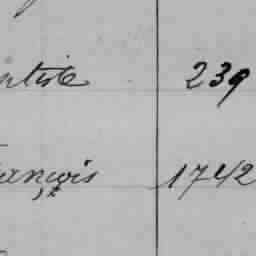 ntiste 239
ançois 1742